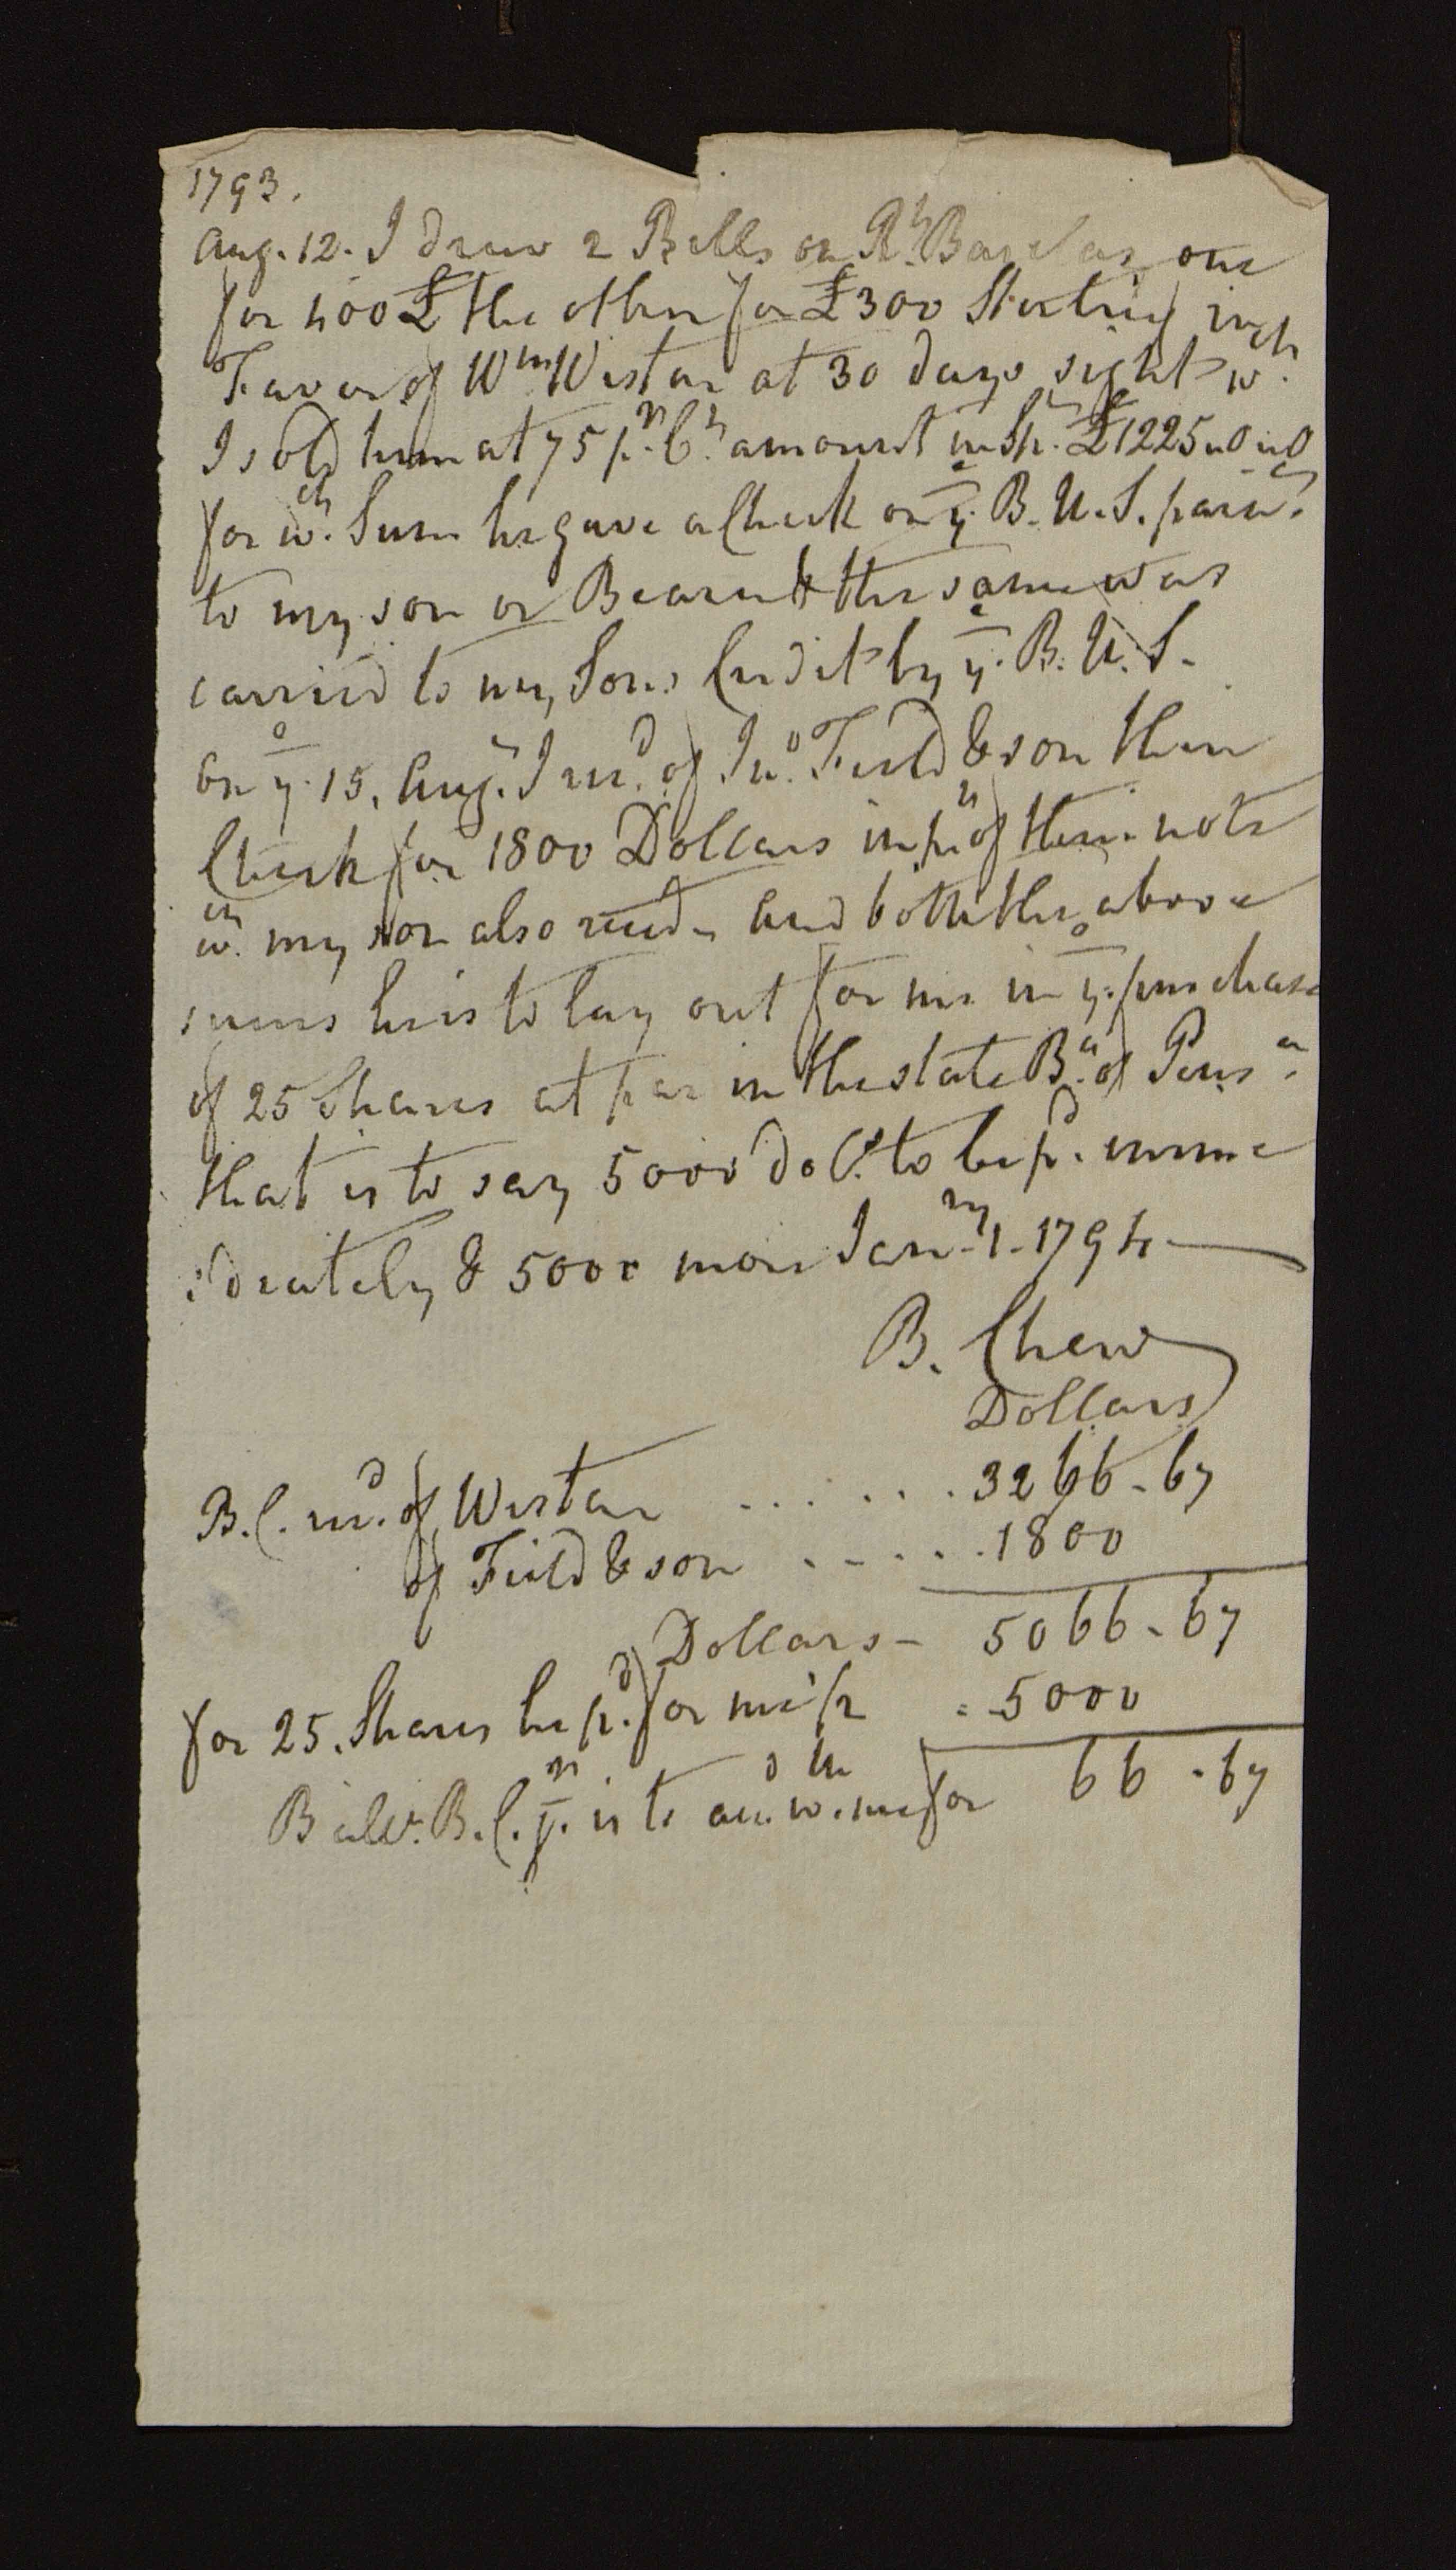 1793.
Aug. 12. I drew 2 Bills on Rt. Barclay one
for 400 £ the other for £300 Sterling in
Favor of Wm Wistar at 30 days sight wch.
I sold him at 75 pr. Ct. amount in Sp. £1225.0.0
for wch. Sum he gave a Check on ye. B. U. S. paia.
to my son or Bearer & the same was
carried to my Sons Credit by ye. B. U. S.
On ye. 15. Augt. I recd. of Jno. Field & son their
Check for 1800 Dollars in pt. of their note
wch. my son also recd. and both the above
sums he is to lay out for me in ye. purchase
of 25 Shares at par in the state Bk. of Pensa.
that is to say 5000 Dolls. to be pd. imme
:diately & 5000 more Janry. 1. 1794
B. Chew
Dollars
B. C. recd. of Wistar . . . . . . 3266-67
of Field & son . . . . . 1800
Dollars - 5066-67
for 25. Shares he pd. for me = 5000
B. C. jr. is to acct. wth. me for 66-67